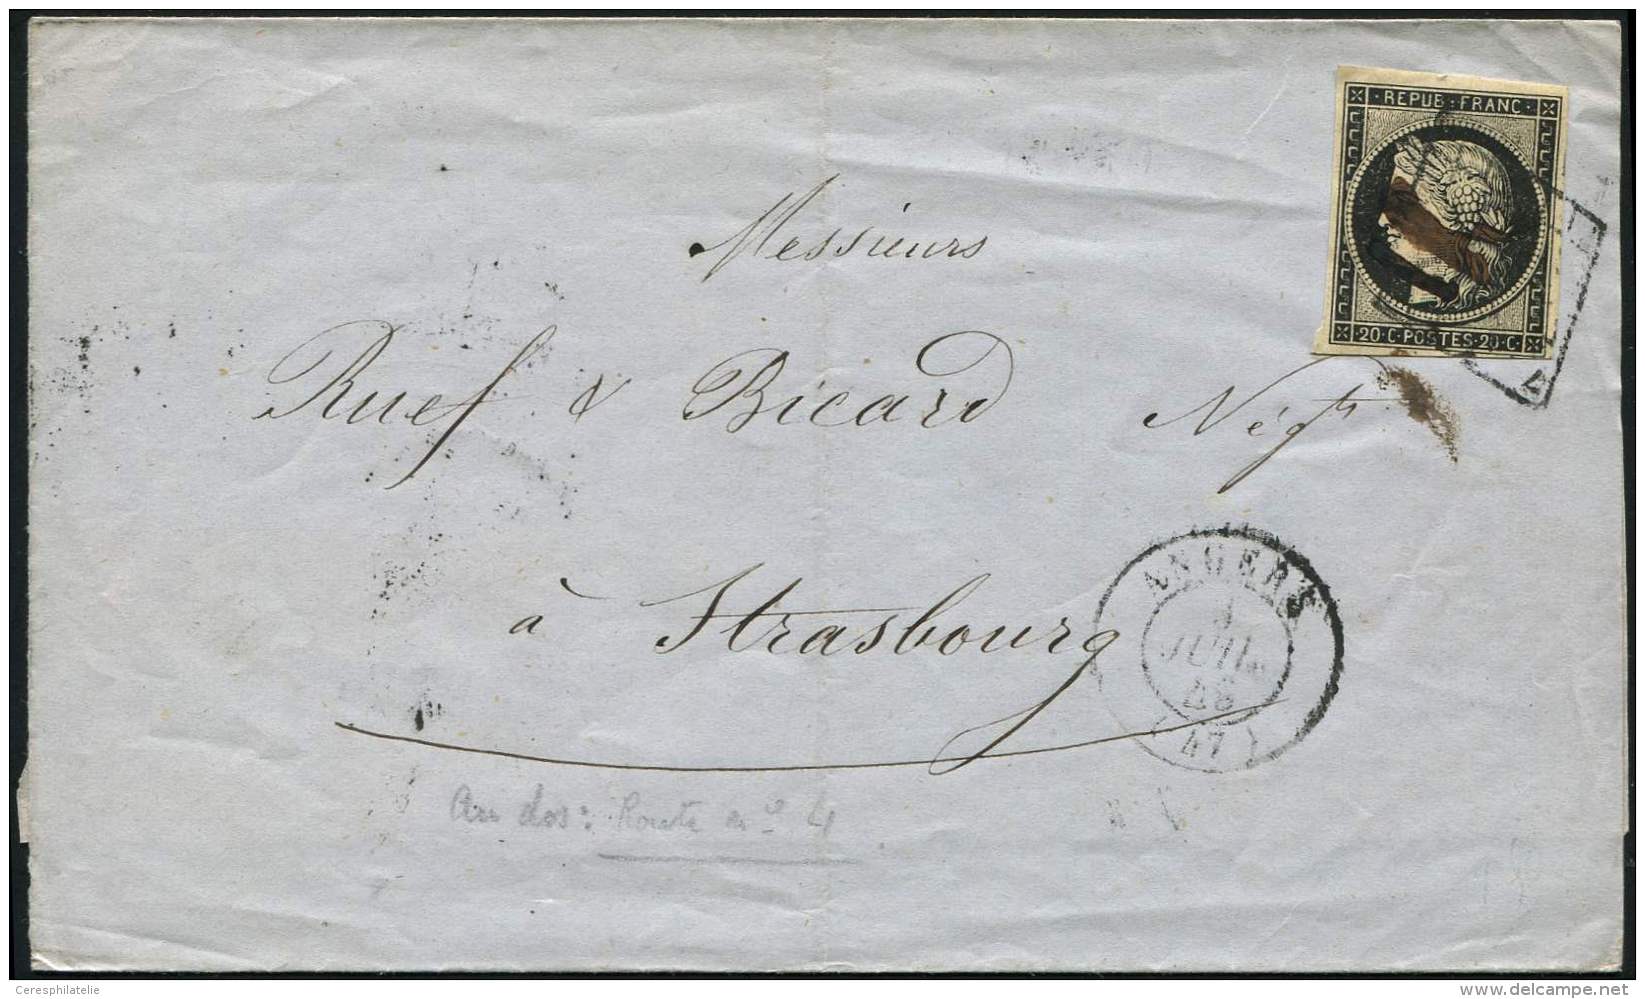 REPUB·FRANC·
20·C·POSTES·20·C·
4
Messieurs
Ruef & Bicard Négts
à Strasbourg
ANGERS
JUIL
(47)
Au dos: Route nº 4
Ceresphilatelie
www.delcampe.net